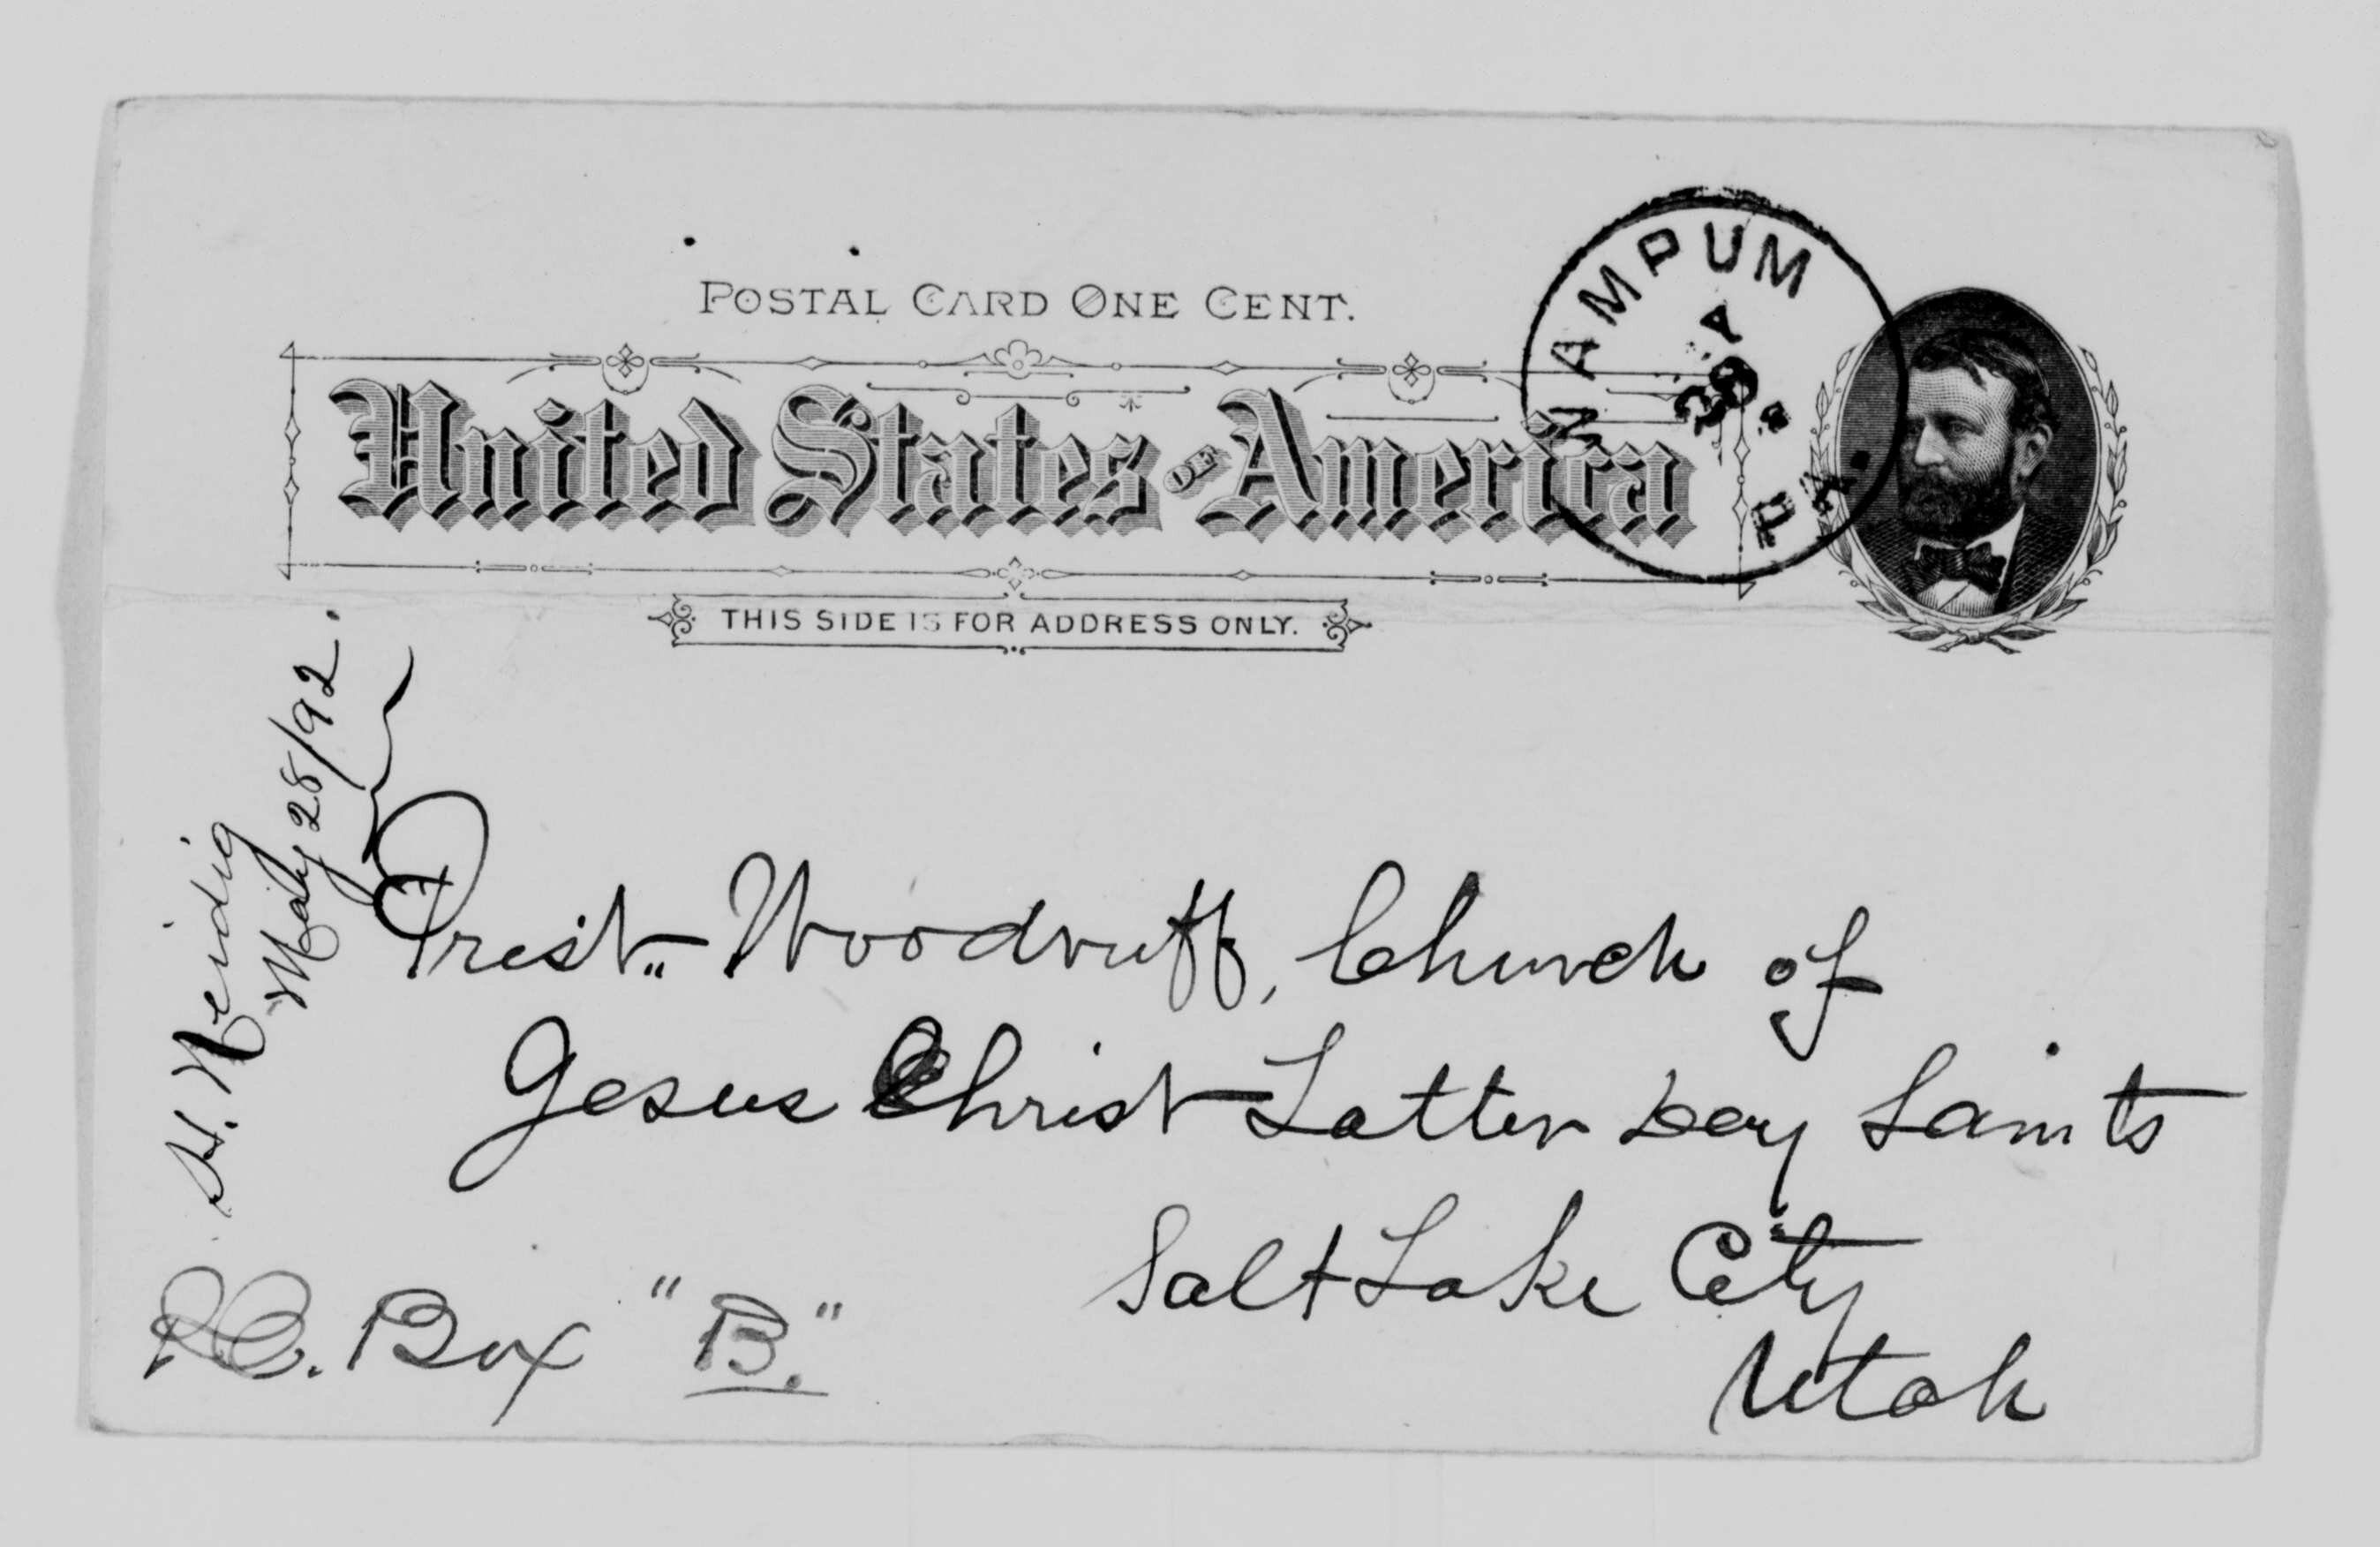 POSTAL CARD ONE CENT.
United States OF America
THIS SIDE IS FOR ADDRESS ONLY.
WAMPUM
PA.
H. Neidig
May 28/92.
Prest. Woodruff, Church of
Jesus Christ Latter Day Saints
Salt Lake City
Utah
P.O. Box "B."